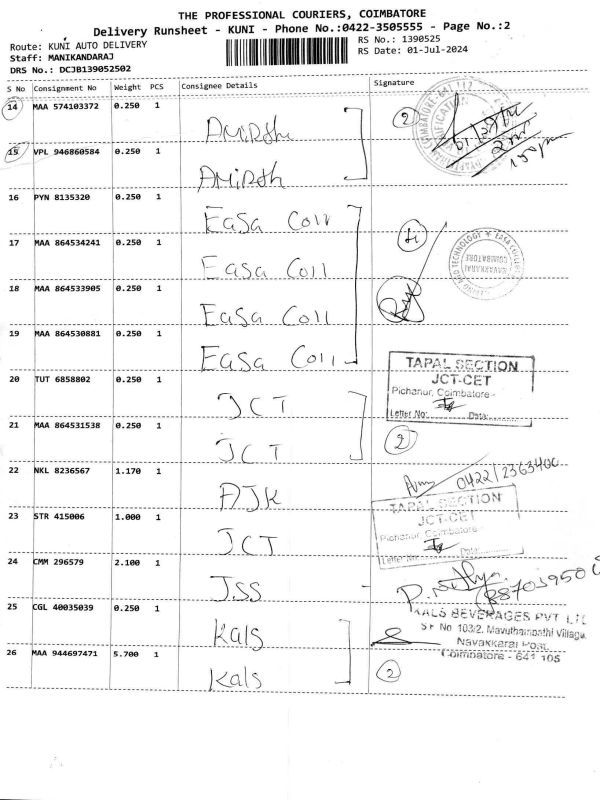 THE PROFESSIONAL COURIERS, COIMBATORE
Delivery Runsheet - KUNI - Phone No.:0422-3505555 - Page No.:2
Route: KUNI AUTO DELIVERY
RS No.: 1390525
Staff: MANIKANDARAJ
RS Date: 01-Jul-2024
DRS No.: DCJB139052502
S No Consignment No Weight PCS Consignee Details Signature
14 MAA 574103372 0.250 1 Amirth 2
15 VPL 946860584 0.250 1 Amirth
16 PYN 8135320 0.250 1 EaSa Coll
17 MAA 864534241 0.250 1 EaSa Coll
18 MAA 864533905 0.250 1 EaSa Coll
19 MAA 864530881 0.250 1 EaSa Coll
TAPAL SECTION
JCT-CET
Pichanur, Coimbatore-
Letter No: Date:
20 TUT 6858802 0.250 1 JCT
21 MAA 864531538 0.250 1 JCT 2
22 NKL 8236567 1.170 1 AJK 0422/2363400
TAPAL SECTION
JCT-CET
Pichanur, Coimbatore-
Letter No: Date:
23 STR 415006 1.000 1 JCT
24 CMM 296579 2.100 1 JSS
25 CGL 40035039 0.250 1 Kals
KALS BEVERAGES PVT LTD
SF No 103/2, Mavuthampathi Village
Navakkarai Post,
Coimbatore - 641 105
26 MAA 944697471 5.700 1 Kals 2